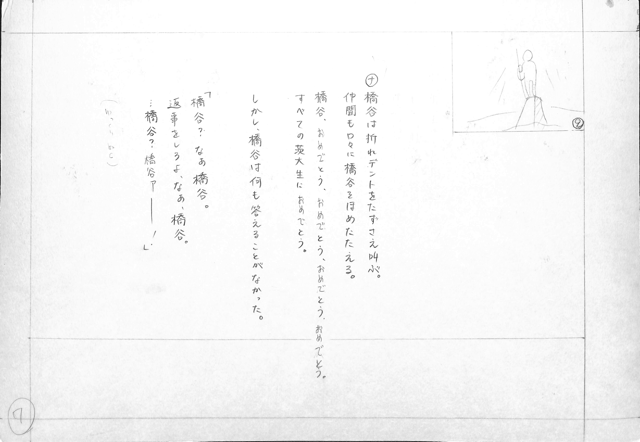 ㋤ 橋谷は折れデントをたずさえ叫ぶ。
仲間も口々に橋谷をほめたたえる。
橋谷、おめでとう、おめでとう、おめでとう、おめでとう。
すべての茨大生におめでとう。
しかし、橋谷は何も答えることがなかった。
「橋谷？なぁ橋谷。
返事をしろよ、なぁ、橋谷。
…橋谷？橋谷ァ――！」
⑧
7